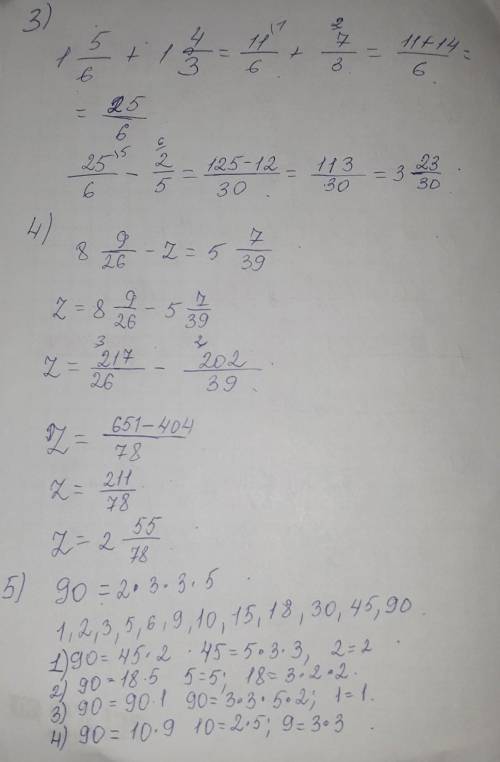 3)
1 5/6 + 1 4/3 = 11/6 \1 + 2/ 7/3 = 11+14/6 =
= 25/6
25/6 \5 - 6/ 2/5 = 125-12/30 = 113/30 = 3 23/30
4)
8 9/26 - z = 5 7/39
z = 8 9/26 - 5 7/39
z = 3/ 217/26 - 2/ 202/39
z = 651-404/78
z = 211/78
z = 2 55/78
5) 90 = 2·3·3·5
1, 2, 3, 5, 6, 9, 10, 15, 18, 30, 45, 90.
1) 90 = 45·2 · 45 = 5·3·3, 2 = 2
2) 90 = 18·5 5 = 5; 18 = 3·2·2.
3) 90 = 90·1 90 = 3·3·5·2; 1 = 1.
4) 90 = 10·9 10 = 2·5; 9 = 3·3